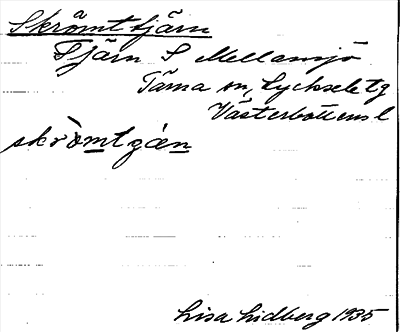 Skrömttjärn
Tjärn S Mellansjö
Tärna sn, Lycksele tg
Västerbottens l
skrömtgæn
Lisa Lidberg 1935